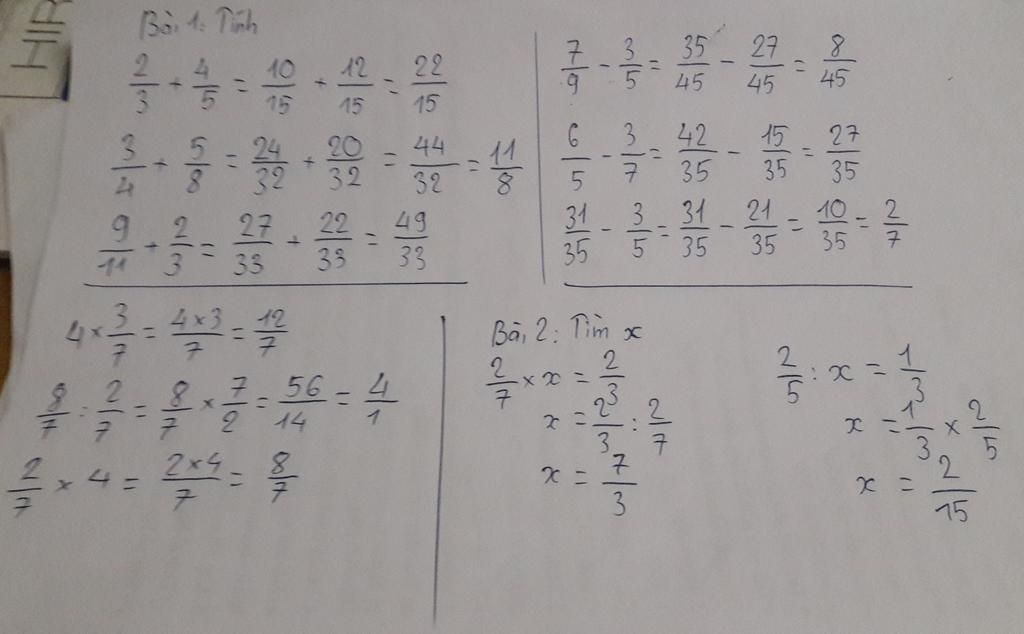 HIR
Bài 1: Tính
2/3 + 4/5 = 10/15 + 12/15 = 22/15
3/4 + 5/8 = 24/32 + 20/32 = 44/32 = 11/8
9/11 + 2/3 = 27/33 + 22/33 = 49/33
7/9 - 3/5 = 35/45 - 27/45 = 8/45
6/5 - 3/7 = 42/35 - 15/35 = 27/35
31/35 - 3/5 = 31/35 - 21/35 = 10/35 = 2/7
4 × 3/7 = 4×3/7 = 12/7
8/7 : 2/7 = 8/7 × 7/2 = 56/14 = 4/1
2/7 × 4 = 2×4/7 = 8/7
Bài 2: Tìm x
2/7 × x = 2/3
x = 2/3 : 2/7
x = 7/3
2/5 : x = 1/3
x = 1/3 × 2/5
x = 2/15